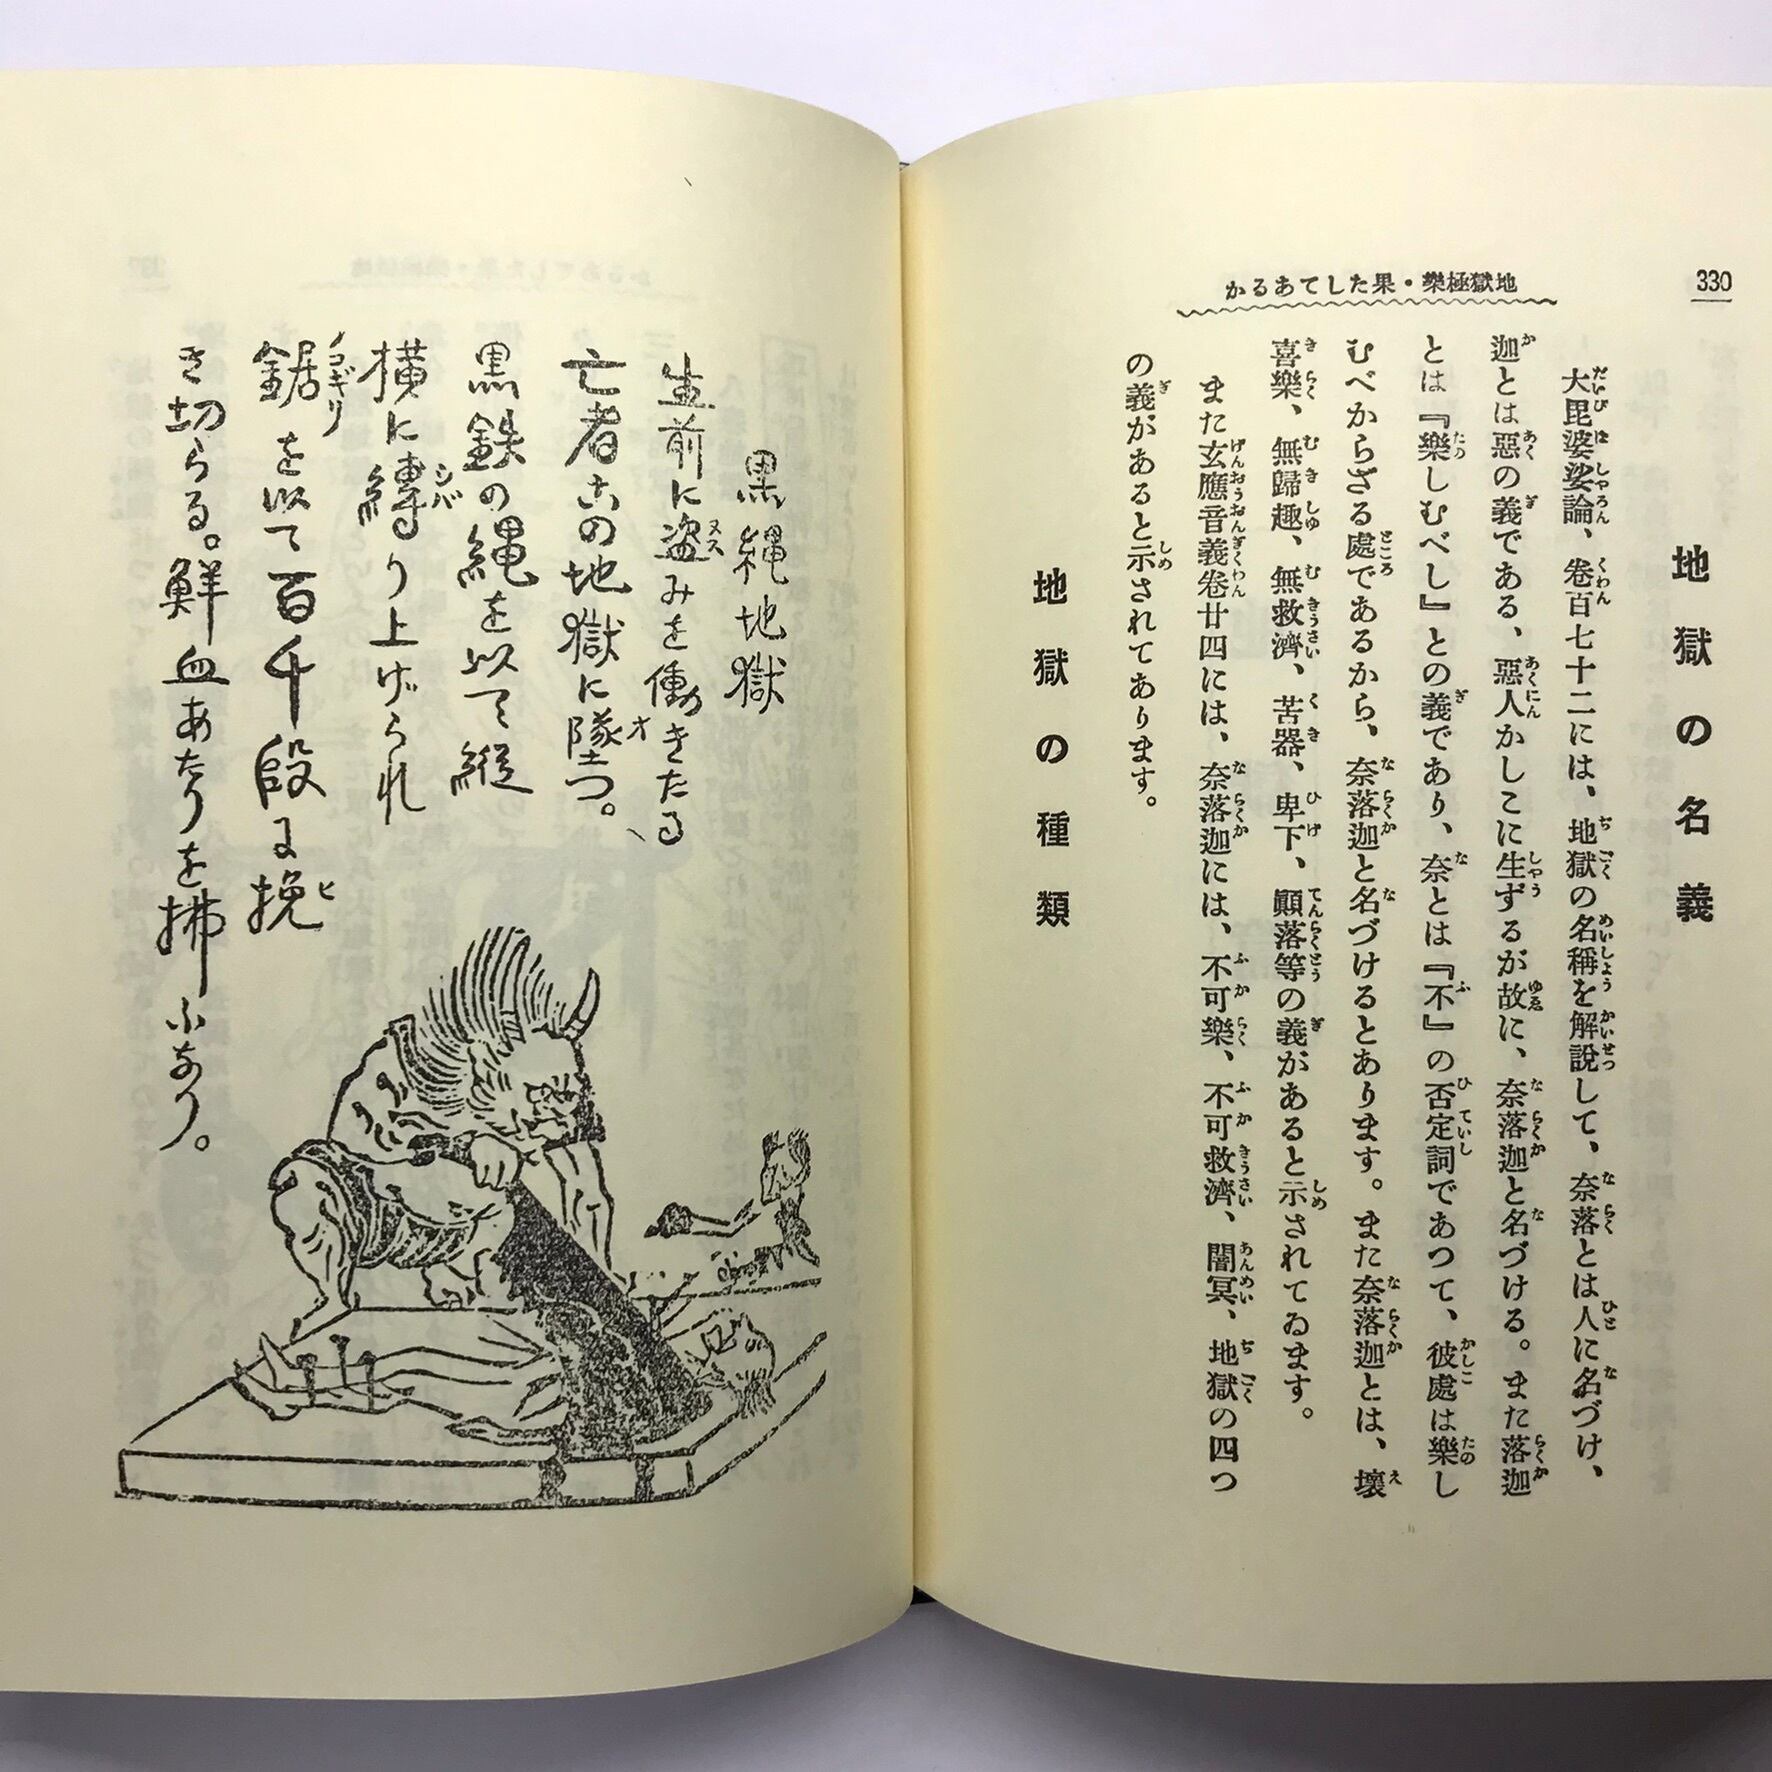 330
地獄極樂・果たしてあるか
地獄の名義
大毘婆娑論、卷百七十二には、地獄の名稱を解説して、奈落とは人に名づけ、
迦とは惡の義である、惡人かしこに生ずるが故に、奈落迦と名づける。また落迦
とは『樂しむべし』との義であり、奈とは『不』の否定詞であつて、彼處は樂し
むべからざる處であるから、奈落迦と名づけるとあります。また奈落迦とは、壞
喜樂、無歸趣、無救濟、苦器、卑下、顚落等の義があると示されてゐます。
また玄應音義卷廿四には、奈落迦には、不可樂、不可救濟、闇冥、地獄の四つ
の義があると示されてあります。
地獄の種類
黒縄地獄
生前に盗みを働きたる
亡者この地獄に墜つ。
黒鉄の縄を以て縦、
横に縛り上げられ
鋸を以て百千段に挽
き切らる。鮮血あたりを拂ふなり。